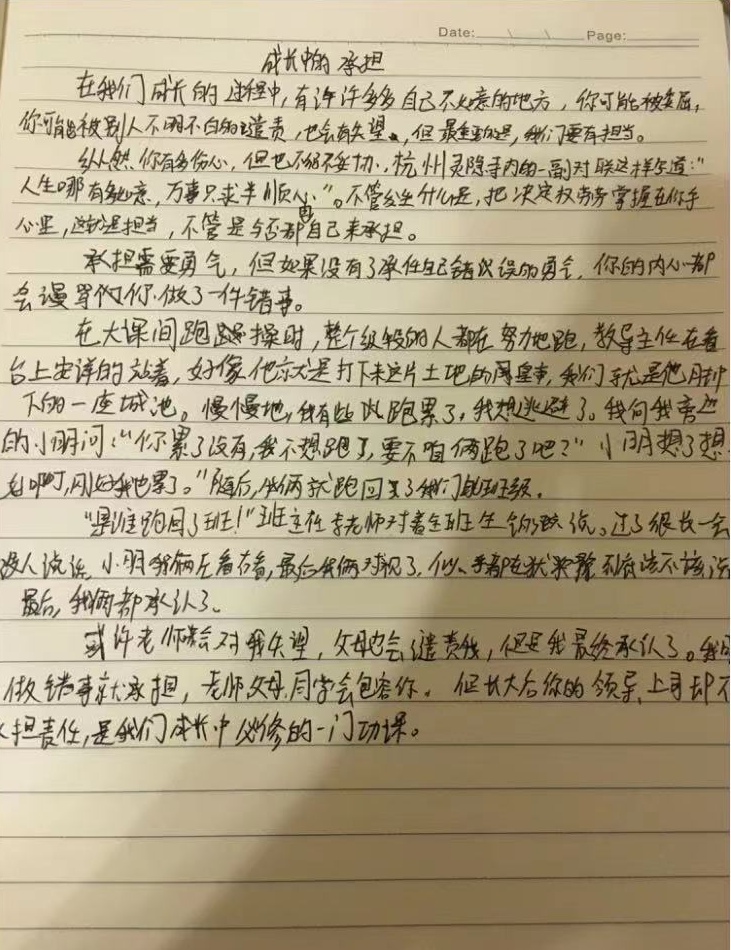 Date: \ \ Page:
成长中的承担
在我们成长的过程中,有许许多多自己不如意的地方,你可能被委屈,
你可能被别人不明不白的谴责,也会有失望,但最重要的是,我们要有担当。
纵然你有多伤心,但也不能不妥协,杭州灵隐寺内的一副对联这样写道:"
人生哪有多如意,万事只求半顺心"。不管发生什么是,把决定权劳劳掌握在你手
心里,这就是担当,不管是与否都由自己来承担。
承担需要勇气,但如果没有了承任自己错误的勇气,你的内心都
会谩骂你做了一件错事。
在大课间跑操时,整个级段的人都在努力地跑,教导主任在看
台上安详的站着,好像他就是打下来这片土地的皇,我们就是他月却
下的一座城池。慢慢地,我有些跑累了,我想逃避了。我向我旁边
的小明问:"你累了没有,我不想跑了,要不咱俩跑了吧?"小明想了想
啊,刚好我也累了。"随后,我俩就跑回了我们班级。
"是谁跑回了班!"班主任李老师对着全班生气的说。过了很长一会
没人说话,小明我俩左看右看,最后我俩对视了,似乎都在犹豫到底该不该说
最后,我俩都承认了。
或许老师会对我失望,父母也会谴责我,但是我最终承认了。我
做错事就承担,老师父母同学会包容你。但长大后你的领导、上司却不
担责任,是我们成长中必修的一门功课。